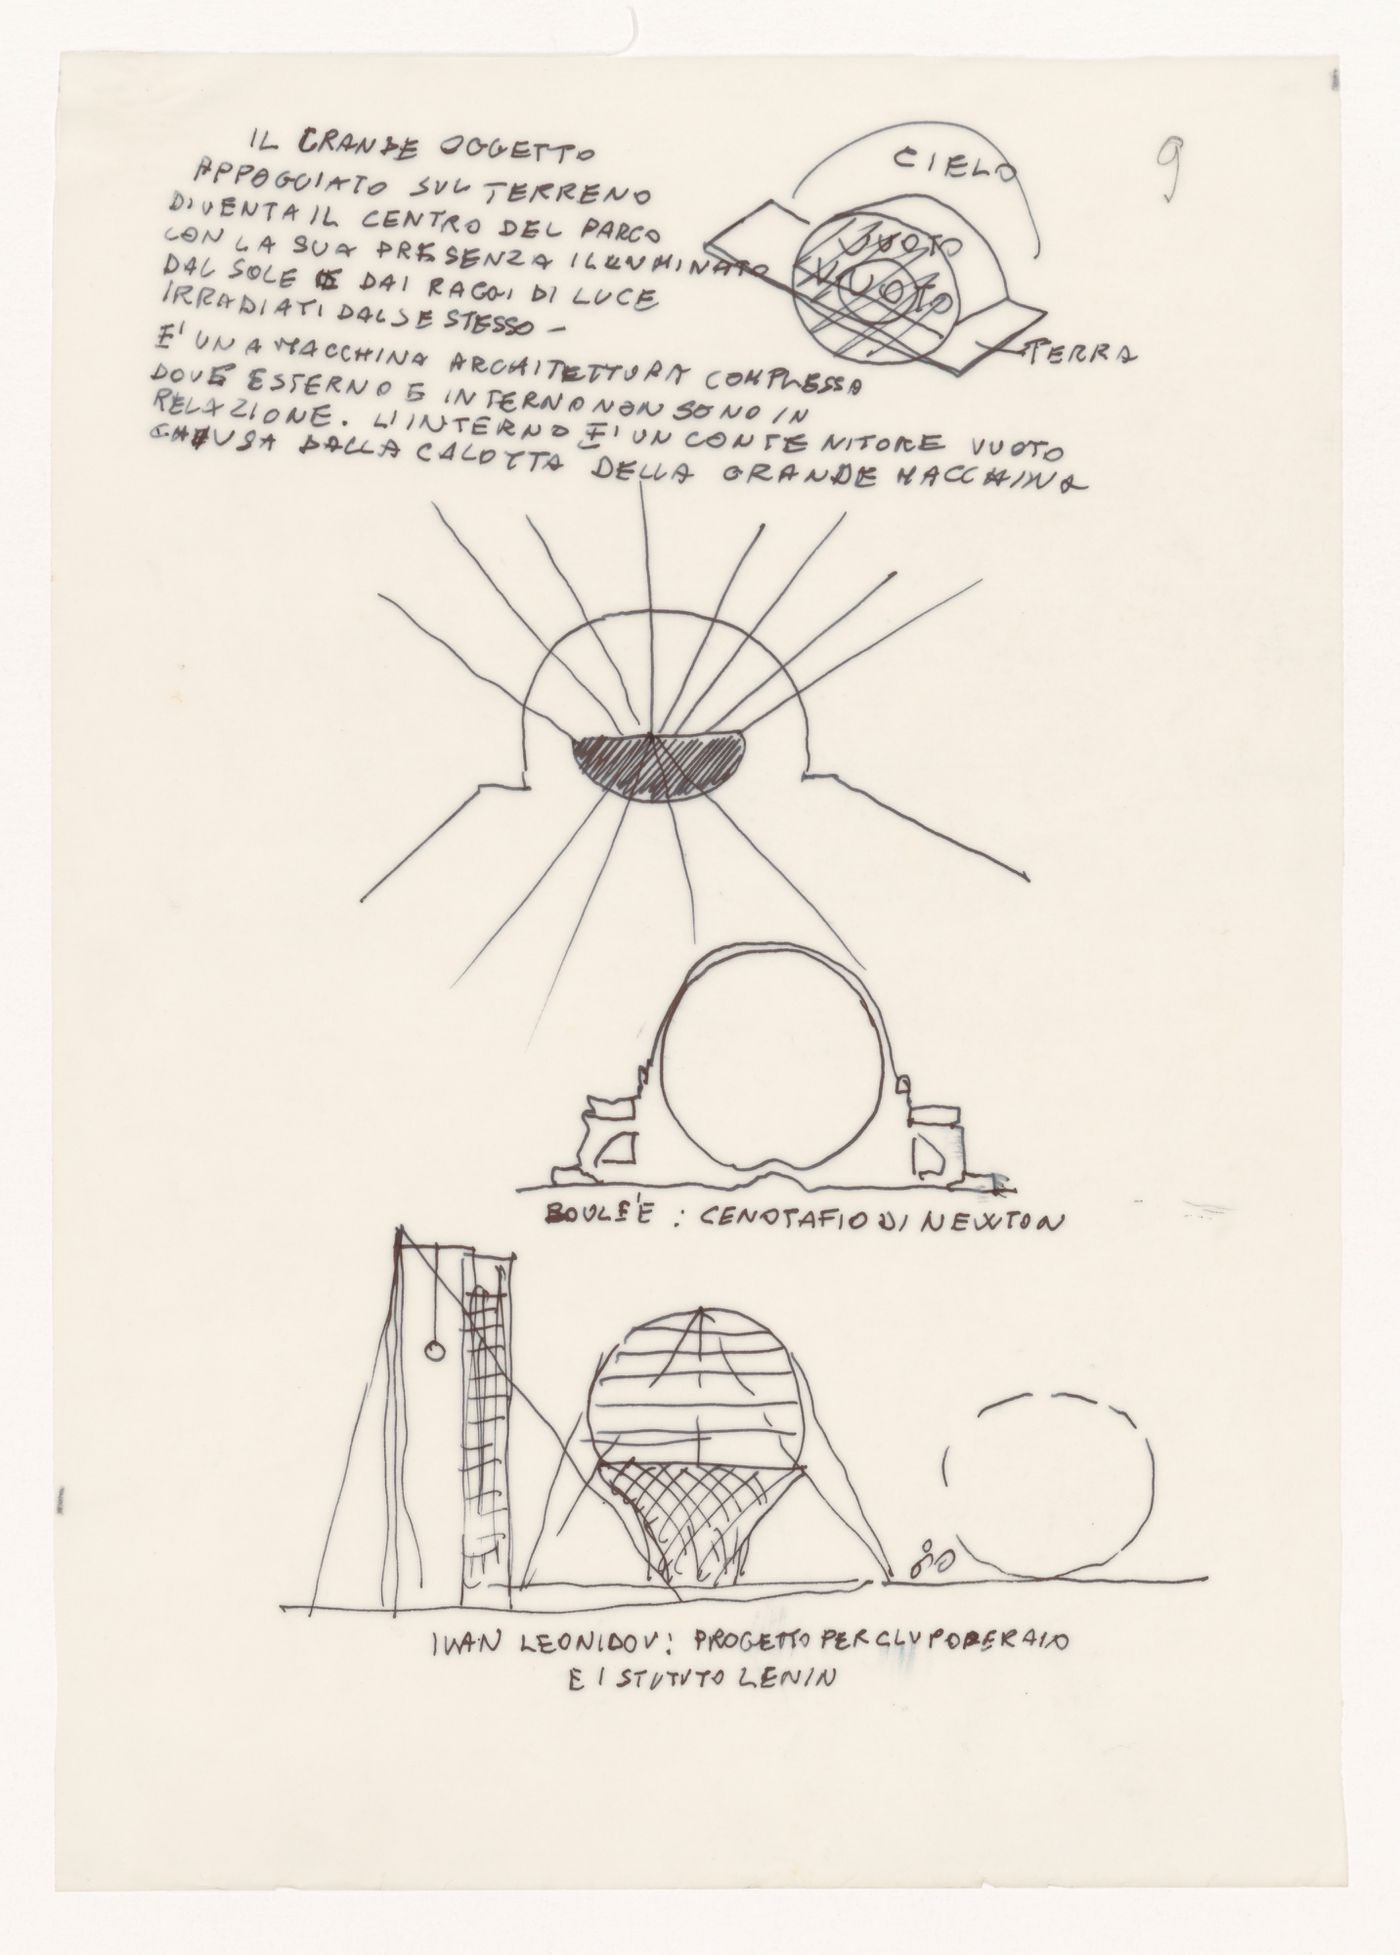 9
IL GRANDE OGGETTO
APPOGGIATO SUL TERRENO
DIVENTA IL CENTRO DEL PARCO
CON LA SUA PRESENZA ILLUMINATO
DAL SOLE E DAI RAGGI DI LUCE
IRRADIATI DAL SE STESSO –
E' UNA MACCHINA ARCHITETTURA COMPLESSA
DOVE ESTERNO E INTERNO NON SONO IN
RELAZIONE. L'INTERNO E' UN CONTENITORE VUOTO
CHIUSA DALLA CALOTTA DELLA GRANDE MACCHINA
CIELO
VUOTO
VUOTO
TERRA
BOULEÉ : CENOTAFIO DI NEWTON
IVAN LEONIDOV : PROGETTO PER CLUP OPERAIO
E ISTUTUTO LENIN